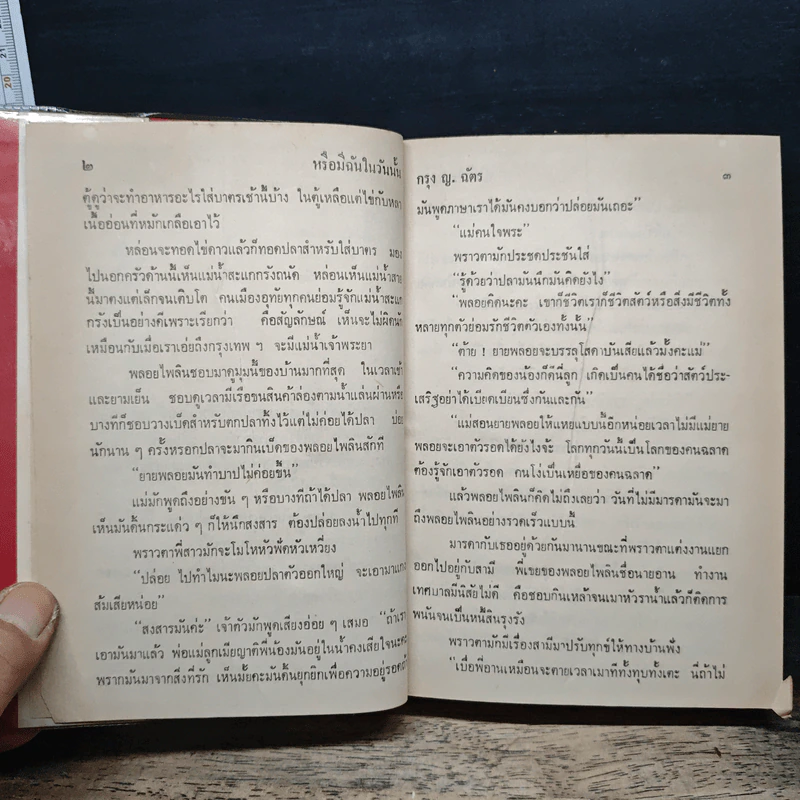 ๒ หรือมีฉันในวันนั้น
ตู้ดูว่าจะทำอาหารอะไรใส่บาตรเช้านี้บ้าง ในตู้เหลือแต่ไข่กับหลา
เนื้ออ่อนที่หมักเกลือเอาไว้
หล่อนจะทอดไข่ดาวแล้วก็ทอดปลาสำหรับใส่บาตร มอง
ไปนอกครัวด้านนี้เห็นแม่น้ำสะแกกรังถนัด หล่อนเห็นแม่น้ำสาย
นี้มาตงแต่เล็กจนเติบโต คนเมืองอุทัยทุกคนย่อมรู้จักแม่น้ำสะแก
กรังเป็นอย่างดีเพราะเรียกว่า คือสัญลักษณ์ เห็นจะไม่ผิดนัก
เหมือนกับเมื่อเราเอ่ยถึงกรุงเทพ ฯ จะมีแม่น้ำเจ้าพระยา
พลอยไพลินชอบมาดูมุมนี้ของบ้านมากที่สุด ในเวลาเช้า
และยามเย็น ชอบดูเวลามีเรือขนสินค้าล่องตามน้ำแล่นผ่านหรือ
บางทีก็ชอบวางเบ็ดสำหรับตกปลาทิ้งไว้แต่ไม่ค่อยได้ปลา บ่อย
นักนาน ๆ ครั้งหรอกปลาจะมากินเบ็ดของพลอยไพลินสักที
“ยายพลอยมันทำบาปไม่ค่อยขึ้น”
แม่มักพูดถึงอย่างขัน ๆ หรือบางทีถ้าได้ปลา พลอยไพลิน
เห็นมันดิ้นกระแด่ว ๆ ก็ให้นึกสงสาร ต้องปล่อยลงน้ำไปทุกที
พราวตาพี่สาวมักจะโมโหหัวฟัดหัวเหวี่ยง
“ปล่อย ไปทำไมนะพลอยปลาตัวออกใหญ่ จะเอามาแกง
ส้มเสียหน่อย”
“สงสารมันค่ะ” เจ้าตัวมักพูดเสียงอ่อย ๆ เสมอ “ถ้าเรา
เอามันมาแล้ว พ่อแม่ลูกเมียญาติพี่น้องมันอยู่ในน้ำคงเสียใจนะคะ
พรากมันมาจากสิ่งที่รัก เห็นมั้ยคะมันดิ้นยุกยิกเพื่อความอยู่รอดถ้า
กรุง ญ. ฉัตร ๓
มันพูดภาษาเราได้มันคงบอกว่าปล่อยมันเถอะ”
“แม่คนใจพระ”
พราวตามักประชดประชันใส่
“รู้ด้วยว่าปลามันนึกมันคิดยังไง”
“พลอยคิดนะคะ เขาก็ชีวิตเราก็ชีวิตสัตว์หรือสิ่งมีชีวิตทั้ง
หลายทุกตัวย่อมรักชีวิตตัวเองทั้งนั้น”
“ต้าย ! ยายพลอยจะบรรลุโสดาบันเสียแล้วมั้งคะแม่”
“ความคิดของน้องก็ดีนี่ลูก เกิดเป็นคนได้ชื่อว่าสัตว์ประ-
เสริฐอย่าได้เบียดเบียนซึ่งกันและกัน”
“แม่สอนยายพลอยให้แหยแบบนี้อีกหน่อยเวลาไม่มีแม่ยาย
พลอยจะเอาตัวรอดได้ยังไงจ้ะ โลกทุกวันนี้เป็นโลกของคนฉลาด
ต้องรู้จักเอาตัวรอด คนโง่เป็นเหยื่อของคนฉลาด”
แล้วพลอยไพลินก็คิดไม่ถึงเลยว่า วันที่ไม่มีมารดามันจะมา
ถึงพลอยไพลินอย่างรวดเร็วแบบนี้
มารดากับเธออยู่ด้วยกันมานานขณะที่พราวตาแต่งงานแยก
ออกไปอยู่กับสามี พี่เขยของพลอยไพลินชื่อนายอาน ทำงาน
เทศบาลมีนิสัยไม่ดี คือชอบกินเหล้าจนเมาหัวราน้ำแล้วก็ติดการ
พนันจนเป็นหนี้สินรุงรัง
พราวตามักมีเรื่องสามีมาปรับทุกข์ให้ทางบ้านฟัง
“เบื่อพี่อานเหมือนจะตายเวลาเมาทีทั้งทุบทั้งเตะ นี่ถ้าไม่